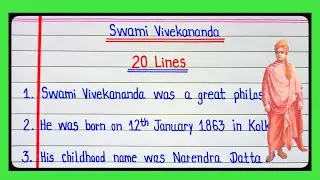 Swami Vivekananda
20 Lines
1. Swami Vivekananda was a great
2. He was born on 12th January 1863 in
3. His childhood name was Narendra Datta